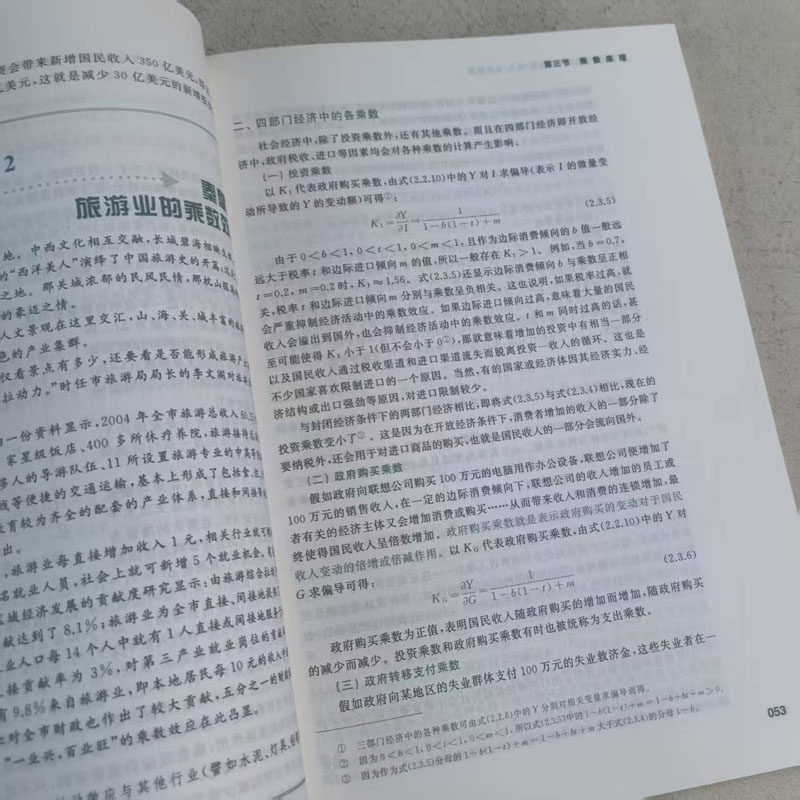 资会带来新增国民收入 350 亿美元,
亿美元,这就是减少 30 亿美元的新增
2
秦皇
旅游业的乘数效
地。中西文化相互交融,长城碧海相映
的“西洋美人”演绎了中国旅游史的开篇;
之地。那关城浓郁的民风民情,那枕山
的豪迈之情。
人文景观在这里交汇,山、海、关、城丰富的
色的产业集群。
仅看景点有多少,还要看是否能形成旅游产
拉动力。”时任市旅游局局长的李文阁对旅
一份资料显示,2004 年全市旅游总收入
家星级饭店、400 多所休疗养院,旅游接待
多人的导游队伍、11 所设置旅游专业的中高等
线等便捷的交通运输,基本上形成了包括食、
教育较为齐全的配套的产业体系,直接和间接
出。
,旅游业每直接增加收入 1 元,相关行业就可
名就业人员,社会上就可新增 5 个就业机会,
区域经济发展的贡献度研究显示:由旅游综合
献达到了 8.1%;旅游业为全市直接、间接地
业人口每 14 个人中就有 1 人直接或间接地服务
接贡献率为 3%,对第三产业就业岗位的贡献
有 9.8%来自旅游业,即本地居民每 10 元的收入
时对全市财政也作出了较大贡献,五分之一的财政
“一业兴,百业旺”的乘数效应在此凸显。
效应与其他行业(譬如水泥、灯具、
第三节 乘数原理
二、四部门经济中的各乘数
社会经济中,除了投资乘数外,还有其他乘数。而且在四部门经济即开放经
济中,政府税收、进口等因素均会对各种乘数的计算产生影响。
(一) 投资乘数
以 K₁ 代表政府购买乘数,由式(2.2.10)中的 Y 对 I 求偏导(表示 I 的微量变
动所导致的 Y 的变动额)可得①:
K₁=∂Y/∂I=1/(1-b(1-t)+m) (2.3.5)
由于 0<b<1,0<t<1,0<m<1,且作为边际消费倾向的 b 值一般远
远大于税率 t 和边际进口倾向 m 的值,所以一般存在 K₁>1。例如,当 b=0.7,
t=0.2,m=0.2 时,K₁≈1.56。式(2.3.5)还显示边际消费倾向 b 与乘数呈正相
关,税率 t 和边际进口倾向 m 分别与乘数呈负相关。这也说明,如果税率过高,就
会严重抑制经济活动中的乘数效应。如果边际进口倾向过高,意味着大量的国民
收入会溢出到国外,也会抑制经济活动中的乘数效应。t 和 m 同时过高的话,甚
至可能使得 K₁ 小于 1(但不会小于 0②),那就意味着增加的投资中有相当一部分
以及国民收入通过税收渠道和进口渠道流失而脱离投资—收入的循环。这也是
不少国家喜欢限制进口的一个原因。当然,有的国家或经济体因其经济实力、经
济结构或出口强劲等原因,对进口限制较少。
与封闭经济条件下的两部门经济相比,即将式(2.3.5)与式(2.3.4)相比,现在的
投资乘数变小了③。这是因为在开放经济条件下,消费者增加的收入的一部分除了
要纳税外,还会用于对进口商品的购买,也就是国民收入的一部分会流向国外。
(二) 政府购买乘数
假如政府向联想公司购买 100 万元的电脑用作办公设备,联想公司便增加了
100 万元的销售收入,在一定的边际消费倾向下,联想公司的收入增加的员工或
者有关的经济主体又会增加消费或购买……从而带来收入和消费的连锁增加,最
终使得国民收入呈倍数增加。政府购买乘数就是表示政府购买的变动对于国民
收入变动的倍增或倍减作用。以 K_G 代表政府购买乘数,由式(2.2.10)中的 Y 对
G 求偏导可得:
K_G=∂Y/∂G=1/(1-b(1-t)+m) (2.3.6)
政府购买乘数为正值,表明国民收入随政府购买的增加而增加,随政府购买
的减少而减少。投资乘数和政府购买乘数有时也被统称为支出乘数。
(三) 政府转移支付乘数
假如政府向某地区的失业群体支付 100 万元的失业救济金,这些失业者在一
① 三部门经济中的各种乘数可由式(2.2.8)中的 Y 分别对相关变量求偏导而得。
② 因为 0<b<1,0<t<1,0<m<1,所以式(2.3.5)中的 1-b(1-t)+m=1-b+bt+m>0。
③ 因为作为式(2.3.5)分母的 1-b(1-t)+m=1-b+bt+m 大于式(2.3.4)的分母 1-b。
053